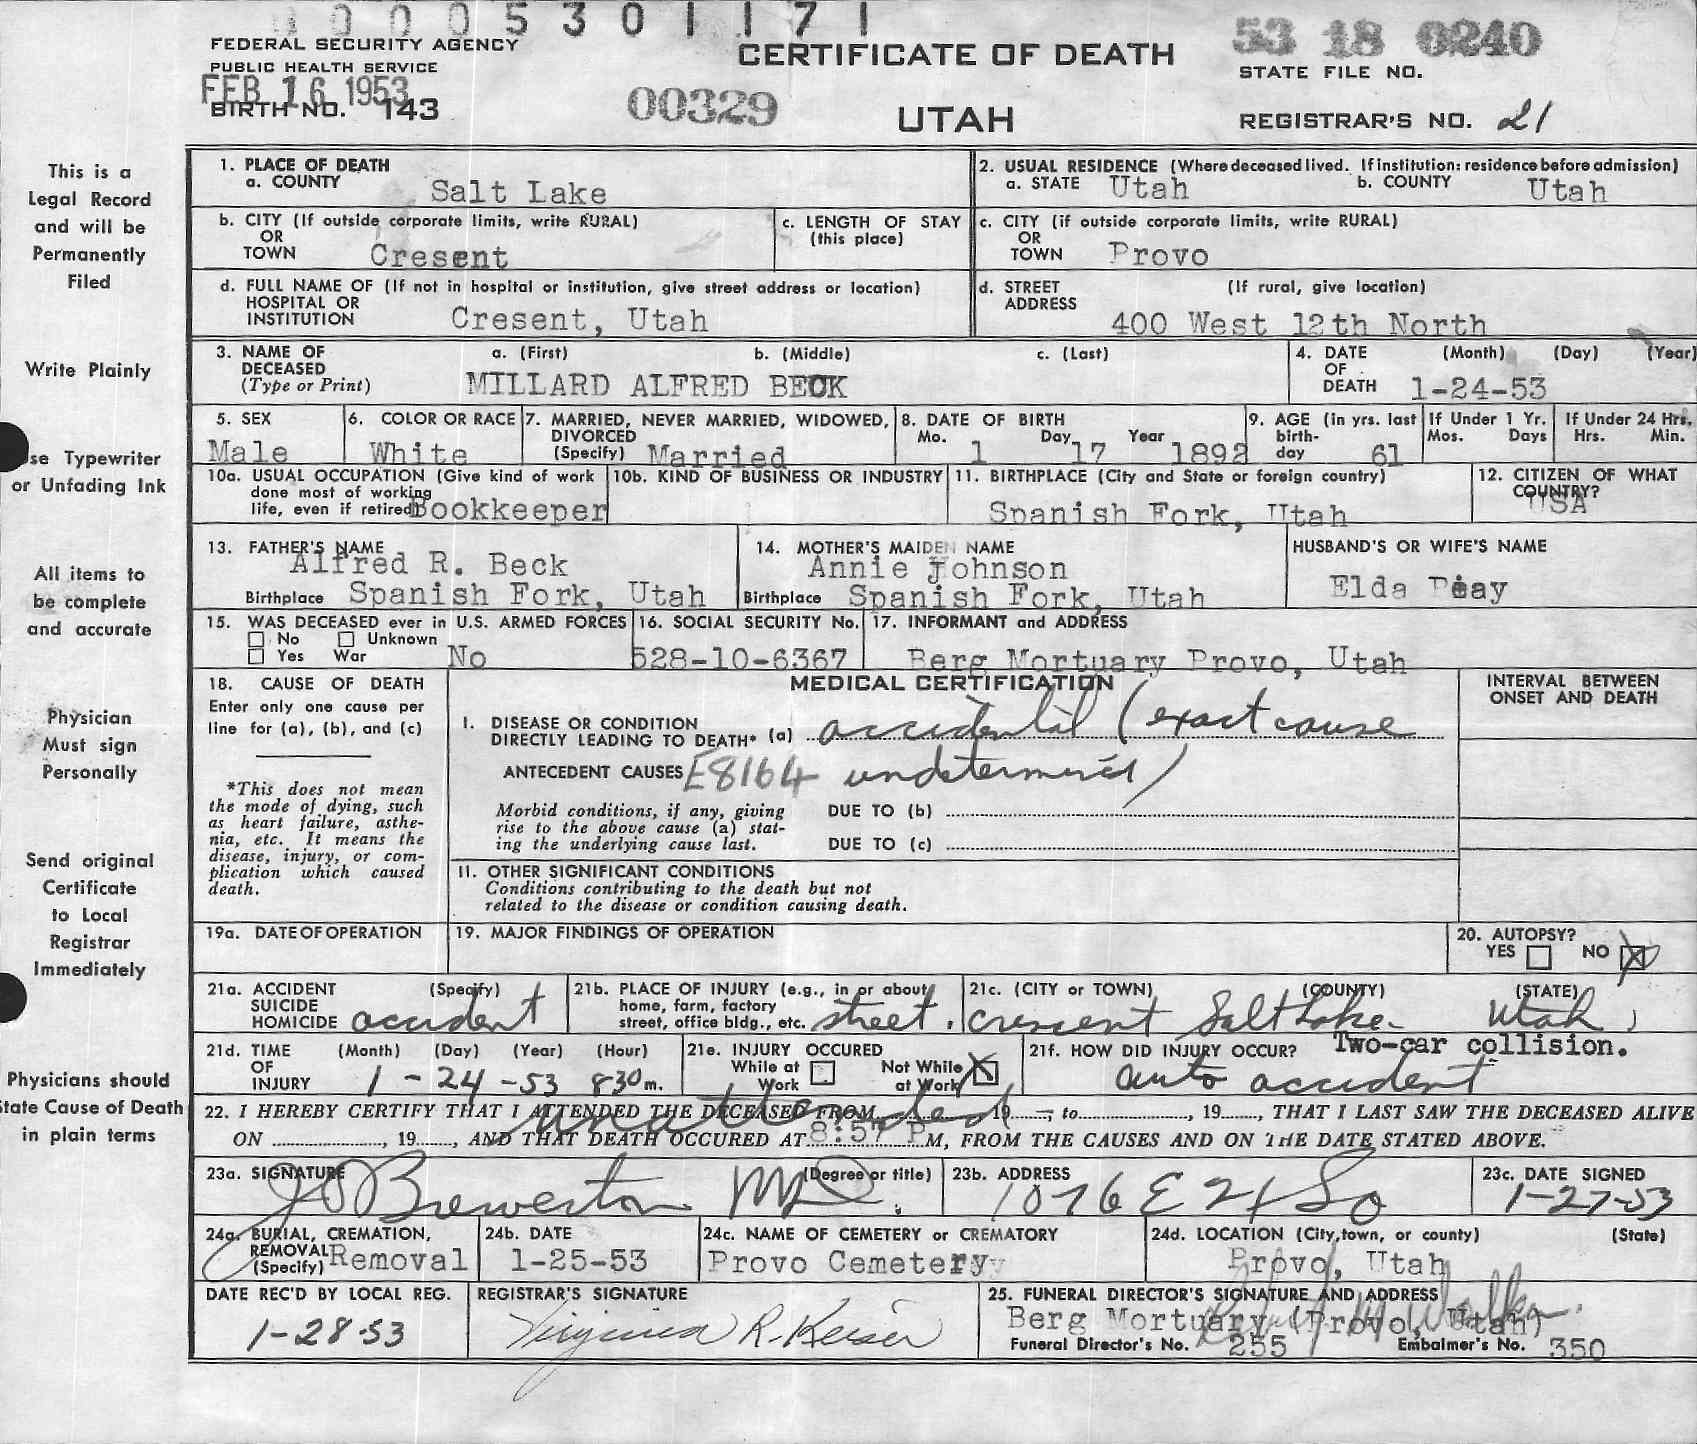 0005301171
FEDERAL SECURITY AGENCY
PUBLIC HEALTH SERVICE
FEB 16 1953
BIRTH NO. 143
00329
CERTIFICATE OF DEATH
UTAH
53 18 0240
STATE FILE NO.
REGISTRAR'S NO. 21
This is a
Legal Record
and will be
Permanently
Filed
Write Plainly
se Typewriter
or Unfading Ink
All items to
be complete
and accurate
Physician
Must sign
Personally
Send original
Certificate
to Local
Registrar
Immediately
Physicians should
tate Cause of Death
in plain terms
1. PLACE OF DEATH
a. COUNTY Salt Lake
2. USUAL RESIDENCE (Where deceased lived. If institution: residence before admission)
a. STATE Utah b. COUNTY Utah
b. CITY (If outside corporate limits, write RURAL)
OR
TOWN Cresent
c. LENGTH OF STAY
(this place)
c. CITY (if outside corporate limits, write RURAL)
OR
TOWN Provo
d. FULL NAME OF (If not in hospital or institution, give street address or location)
HOSPITAL OR
INSTITUTION Cresent, Utah
d. STREET (If rural, give location)
ADDRESS
400 West 12th North
3. NAME OF DECEASED (Type or Print)
a. (First) b. (Middle) c. (Last)
MILLARD ALFRED BECK
4. DATE OF DEATH (Month) (Day) (Year)
1-24-53
5. SEX
Male
6. COLOR OR RACE
White
7. MARRIED, NEVER MARRIED, WIDOWED,
DIVORCED
(Specify) Married
8. DATE OF BIRTH
Mo. Day Year
1 17 1892
9. AGE (in yrs. last
birth-
day 61
If Under 1 Yr.
Mos. Days
If Under 24 Hrs.
Hrs. Min.
10a. USUAL OCCUPATION (Give kind of work
done most of working
life, even if retired) Bookkeeper
10b. KIND OF BUSINESS OR INDUSTRY
11. BIRTHPLACE (City and State or foreign country)
Spanish Fork, Utah
12. CITIZEN OF WHAT
COUNTRY?
USA
13. FATHER'S NAME
Alfred R. Beck
Birthplace Spanish Fork, Utah
14. MOTHER'S MAIDEN NAME
Annie Johnson
Birthplace Spanish Fork, Utah
HUSBAND'S OR WIFE'S NAME
Elda Peay
15. WAS DECEASED ever in U.S. ARMED FORCES
No Unknown
Yes War No
16. SOCIAL SECURITY No.
528-10-6367
17. INFORMANT and ADDRESS
Berg Mortuary Provo, Utah
18. CAUSE OF DEATH
Enter only one cause per
line for (a), (b), and (c)
*This does not mean
the mode of dying, such
as heart failure, asthe-
nia, etc. It means the
disease, injury, or com-
plication which caused
death.
MEDICAL CERTIFICATION
I. DISEASE OR CONDITION
DIRECTLY LEADING TO DEATH* (a) accidental (exact cause
ANTECEDENT CAUSES E8164 undetermined)
Morbid conditions, if any, giving
rise to the above cause (a) stat-
ing the underlying cause last.
DUE TO (b)
DUE TO (c)
11. OTHER SIGNIFICANT CONDITIONS
Conditions contributing to the death but not
related to the disease or condition causing death.
INTERVAL BETWEEN
ONSET AND DEATH
19a. DATE OF OPERATION
19. MAJOR FINDINGS OF OPERATION
20. AUTOPSY?
YES NO
21a. ACCIDENT (Specify)
SUICIDE
HOMICIDE accident
21b. PLACE OF INJURY (e.g., in or about
home, farm, factory
street, office bldg., etc. street.
21c. (CITY or TOWN) (COUNTY) (STATE)
crescent Salt Lake Utah
21d. TIME (Month) (Day) (Year) (Hour)
OF
INJURY 1-24-53 830 m.
21e. INJURY OCCURED
While at Work Not While at Work
21f. HOW DID INJURY OCCUR? Two-car collision.
auto accident
22. I HEREBY CERTIFY THAT I ATTENDED THE DECEASED FROM unattended 19 to , 19 , THAT I LAST SAW THE DECEASED ALIVE
ON , 19 , AND THAT DEATH OCCURED AT 8:57 P M, FROM THE CAUSES AND ON THE DATE STATED ABOVE.
23a. SIGNATURE (Degree or title)
Brewerton MD.
23b. ADDRESS
1076 E 21 So
23c. DATE SIGNED
1-27-53
24a. BURIAL, CREMATION,
REMOVAL
(Specify) Removal
24b. DATE
1-25-53
24c. NAME OF CEMETERY or CREMATORY
Provo Cemetery
24d. LOCATION (City, town, or county) (State)
Provo, Utah
DATE REC'D BY LOCAL REG.
1-28-53
REGISTRAR'S SIGNATURE
Virginia R. Keiser
25. FUNERAL DIRECTOR'S SIGNATURE AND ADDRESS
Berg Mortuary (Provo, Utah)
Funeral Director's No. 255 Embalmer's No. 350